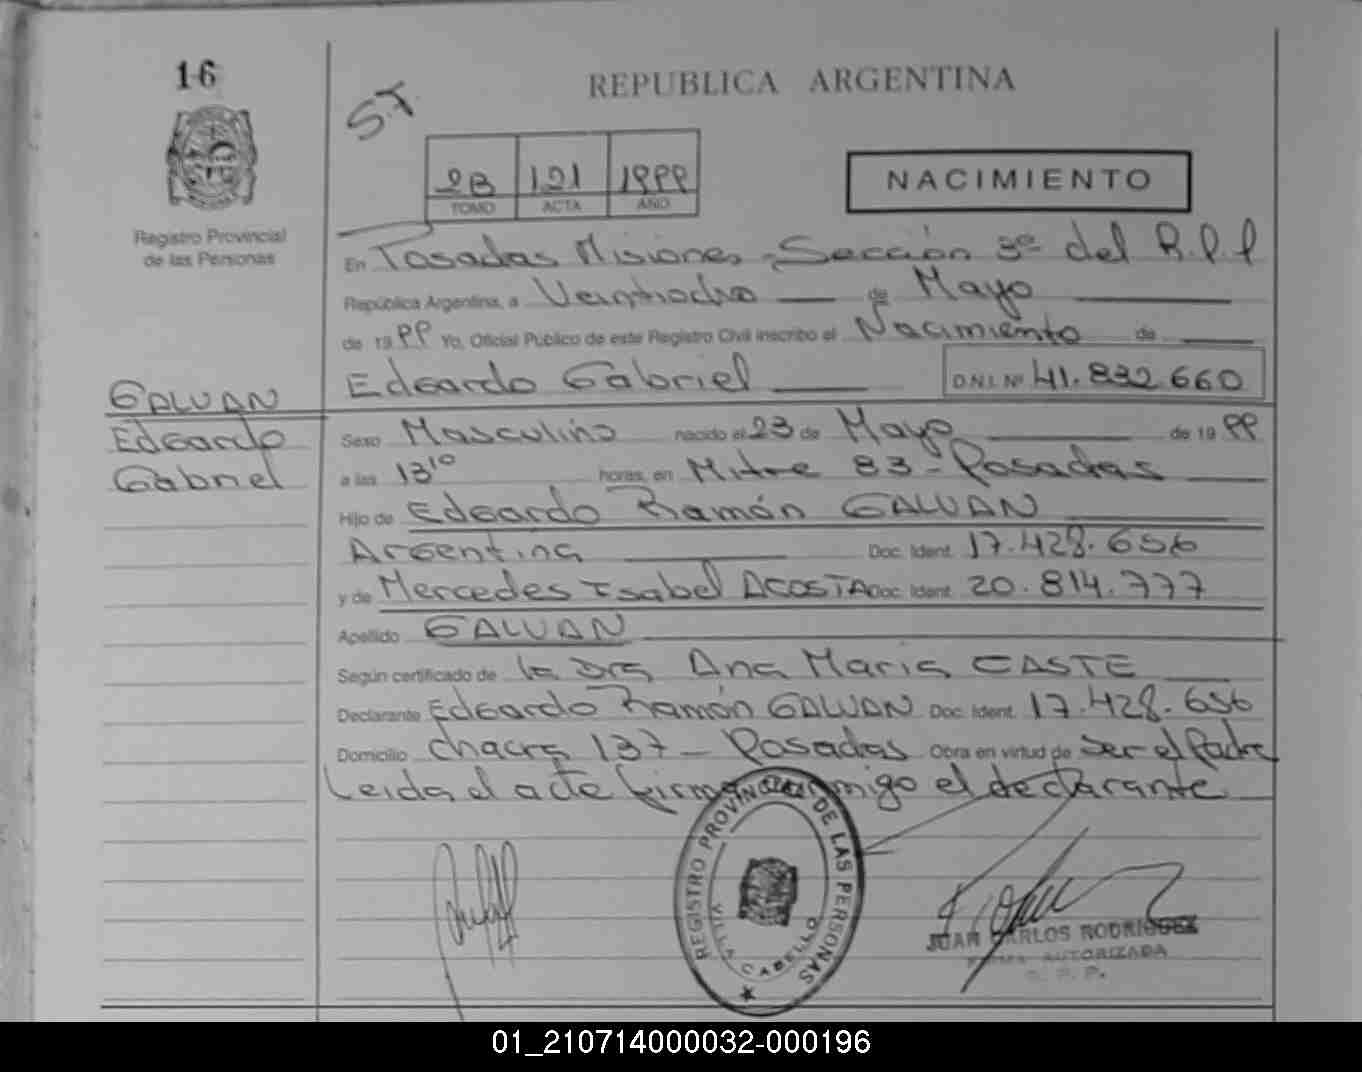 16
Registro Provincial
de las Personas
S.T.
REPUBLICA ARGENTINA
2B 121 1999
TOMO ACTA AÑO
NACIMIENTO
En Posadas Misiones, Sección 3ª del R.P.P
República Argentina, a Veintiocho de Mayo
de 1999 Yo, Oficial Público de este Registro Civil inscribo el Nacimiento de
Edgardo Gabriel D.N.I. Nº 41.832.660
GALVAN
Edgardo
Gabriel
Sexo Masculino nacido el 23 de Mayo de 1999
a las 13¹⁰ horas, en Mitre 83 - Posadas
Hijo de Edgardo Ramón GALVAN
Argentina Doc. Ident. 17.428.656
y de Mercedes Isabel ACOSTA Doc. Ident. 20.814.777
Apellido GALVAN
Según certificado de la Dra Ana Maria CASTE
Declarante Edgardo Ramón GALVAN Doc. Ident. 17.428.656
Domicilio chacra 137 - Posadas Obra en virtud de ser el Padre
Leida el acta firma conmigo el declarante
REGISTRO PROVINCIAL DE LAS PERSONAS
VILLA CABELLO
JUAN CARLOS RODRIGUEZ
FIRMA AUTORIZADA
R. P. P.
01_210714000032-000196